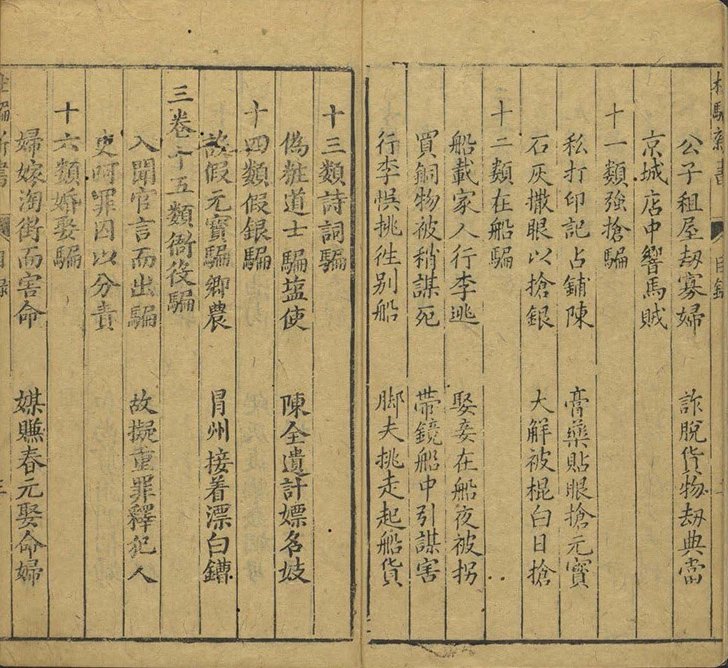 公子租屋刼寡婦 詐脫貨物刼典當
京城店中響馬賊
十一類強搶騙
私打印記占鋪陳 膏藥貼眼搶元寳
石灰撒眼以搶銀 大解被棍白日搶
十二類在船騙
船載家人行李逃 娶妾在船夜被拐
買銅物被稍謀死 帶鏡船中引謀害
行李悞挑徃别船 脚夫挑走起船貨
十三類詩詞騙
偽粧道士騙塩使 陳全遺計嫖名妓
十四類假銀騙
設假元寳騙鄉農 冐州接着漂白鏪
三卷十五類衙役騙
入聞官言而出騙 故擬重罪釋犯人
吏呵罪囚以分責
十六類婚娶騙
婦嫁淘街而害命 媒賺春元娶命婦